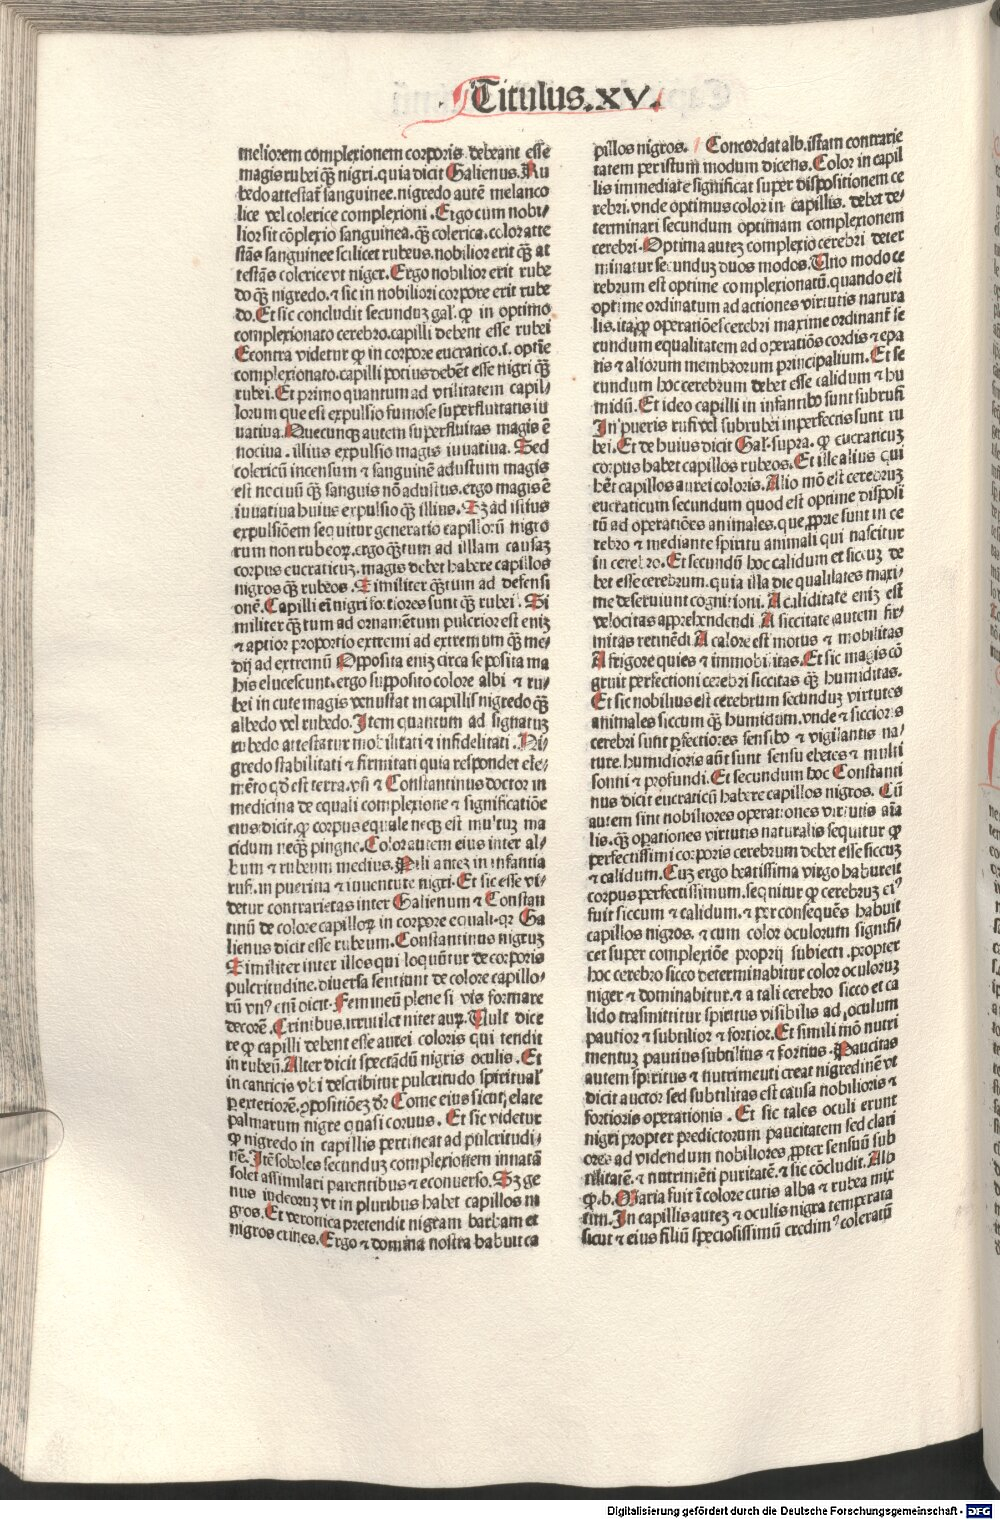 Titulus.xv.
meliorem complexionem corporis debeant esse
magis rubei qꝫ nigri.quia dicit Galienus.Ru
bedo attestat᷑ sanguinee.nigredo autē melanco
lice vel colerice complexioni.Ergo cum nobi⸗
lior sit cōplexio sanguinea.qꝫ colerica.color atte
stās sanguinee scilicet rubeus.nobilior erit qꝫ at
testās colerice vt niger.Ergo nobilior erit rube
do qꝫ nigredo.⁊ sic in nobiliori corpore erit rube
do.Et sic concludit secunduꝫ gal. ꝙ in optimo
complexionato cerebro.capilli debent esse rubei
Econtra videtur ꝙ in corpore eucratico.i. optīe
complexionato.capilli potius debēt esse nigri qꝫ
rubei.Et primo quantum ad vtilitatem capil⸗
lorum que est expulsio fumose superfluitatis iu
uatiua.Quecunqꝫ autem superfluitas magis ē
nociua.illius expulsio magis iuuatiua. Sed
colericū incensum ⁊ sanguinē adustum magis
est nociuū qꝫ sanguis nō adustus.ergo magis ē
iuuatiua huius expulsio qꝫ illius. Sꝫ ad istius
expulsiōem sequitur generatio capillorū nigro
rum non rubeoꝝ.ergo qꝫtum ad illam causaꝫ
corpus eucraticuꝫ.magis debet habere capillos
nigros qꝫ rubeos. Similiter qꝫtum ad defensi
onē.Capilli eī nigri fortiores sunt qꝫ rubei. Si
militer qꝫtum ad ornamētum pulcrior est eniꝫ
⁊ aptior proportio extremi ad extremum qꝫ me⸗
dij ad extremū Opposita eniꝫ circa se posita ma
his elucescunt.ergo supposito colore albi ⁊ ru⸗
bei in cute magis venustat in capillis nigredo qꝫ
albedo vel rubedo.Item quantum ad signatuꝫ
rubedo attestatur mobilitati ⁊ infidelitati. Ni⸗
gredo stabilitati ⁊ firmitati quia respondet ele⸗
mēto qd̓ est terra.vn̄ ⁊ Constantinus doctor in
medicina de equali complexione ⁊ significatiōe
eius dicit.ꝙ corpus equale neqꝫ est multuꝫ ma
cidum neqꝫ pingue.Color autem eius inter al⸗
bum ⁊ rubeum medius.Pili auteꝫ in infantia
rufi.in pueritia ⁊ iuuentute nigri.Et sic esse vi⸗
detur contrarietas inter Galienum ⁊ Constan
tinū de colore capilloꝝ in corpore equali.qꝛ Ga
lienus dicit esse rubeum.Constantinus nigruꝫ
Similiter inter illos qui loquūtur de corporis
pulcritudine.diuersa sentiunt de colore capillo⸗
rū vnꝰ eni᷒ dicit.Femineū plene si vis formare
decorē.Crinibus irrutilet nitet auꝝ.Uult dice
re ꝙ capilli debent esse aurei coloris qui tendit
in rubeū.Alter dicit spectādū nigris oculis. Et
in canticis vbi describitur pulcritudo spiritual᷑
ꝑ exteriorē.ꝓpositiōeꝫ dr̄ Come eius sicut elate
palmarum nigre quasi coruus. Et sic videtur
ꝙ nigredo in capillis pertineat ad pulcritudi⸗
nē.Itē soboles secunduꝫ complexionem innatā
solet assimilari parentibus ⁊ econuerso. Sꝫ ge
nus iudeoruꝫ vt in pluribus habet capillos ni
gros.Et veronica pretendit nigram barbam et
nigros crines.Ergo ⁊ domina nostra habuit ca
pillos nigros. Concordat alb.istam contrarie
tatem per istum modum dicens.Color in capil
lis immediate significat super dispositionem ce
rebri.vnde optimus color in capillis. debet de⸗
terminari secundum optimam complexionem
cerebri.Optima auteꝫ complexio cerebri deter
minatur secunduꝫ duos modos.Uno modo ce
rebrum est optime complexionatū.quando est
optime ordinatum ad actiones virtutis natura
lis.ita ꝙ operatiōes cerebri maxime ordinant᷑ se
cundum equalitatem ad operatiōs cordis ⁊ epa
tis ⁊ aliorum membrorum principalium. Et se
cundum hoc cerebrum debet esse calidum ⁊ hu
midū.Et ideo capilli in infantibꝰ sunt subrufi
In pueris rufi vel subrubei inperfectis sunt ru
bei.Et de huius dicit Gal.supra. ꝙ eucraticuꝫ
corpus habet capillos rubeos.Et ille alius qui
hēt capillos aurei coloris.Alio mō est cerebruꝫ
eucraticum secundum quod est optime disposi
tū ad operatiōes animales.que ꝓprie sunt in ce
rebro ⁊ mediante spiritu animali qui nascitur
in cerebro.Et secundū hoc calidum et siccuꝫ de
bet esse cerebrum.quia illa die qualitates maxi⸗
me deseruiunt cognitioni.A caliditate eniꝫ est
velocitas apprehendendi A siccitate autem fir⸗
mitas retinēdi A calore est motus ⁊ mobilitas
A frigore quies ⁊ immobilitas.Et sic magis cō
gruit perfectioni cerebri siccitas qꝫ humiditas.
Et sic nobilius est cerebrum secunduꝫ virtutes
animales siccum qꝫ humidum.vnde ⁊ sicciores
cerebri sunt ꝑfectiores sensibꝰ ⁊ vigilantis na⸗
ture.humidioris aūt sunt sensu ebetes ⁊ multi
somni ⁊ profundi.Et secundum hoc Constanti
nus dicit eucraticū habere capillos nigros. Cū
autem sint nobiliores operationes virtutis aīa
lis.qꝫ oꝑationes virtutis naturalis sequitur ꝙ
perfectissimi corporis cerebrum debet esse siccuꝫ
⁊ calidum.Cuꝫ ergo beatissima virgo habuerit
corpus perfectissimum.sequitur ꝙ cerebruꝫ eiꝰ
fuit siccum ⁊ calidum.⁊ per consequēs habuit
capillos nigros. ⁊ cum color oculorum signifi⸗
cet super complexiōe proprij subiecti.propter
hoc cerebro sicco determinabitur color oculoruꝫ
niger ⁊ dominabitur.⁊ a tali cerebro sicco et ca
lido trāsmittitur spiritus visibilis ad oculum
pautior ⁊ subtilior ⁊ fortior.Et simili mō nutri
mentuꝫ pautius subtilius ⁊ fortius.Paucitas
autem spiritus ⁊ nutrimenti creat nigredinē vt
dicit auctor sed subtilitas est causa nobilioris ⁊
fortioris operationis. Et sic tales oculi erunt
nigri propter predictorum paucitatem sed clari
ores ad videndum nobiliores ꝓpter sensuū sub
tilitatē.⁊ nutrimēti puritatē.⁊ sic cōcludit.Alb
ꝙ.b.Maria fuit ī colore cutis alba ⁊ rubea mix
tim.In capillis auteꝫ ⁊ oculis nigra temperata
sicut ⁊ eius filiū speciosissimū credimꝰ coloratū
Digitalisierung gefördert durch die Deutsche Forschungsgemeinschaft - DFG